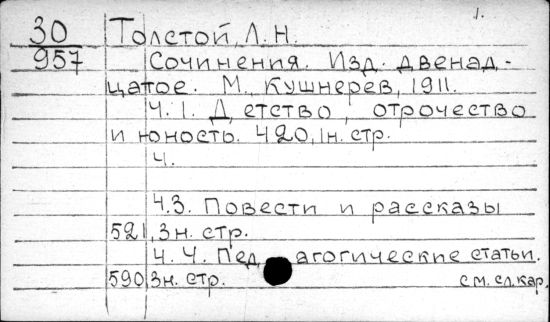 1.
30 Толстой, Л. Н.
957 Сочинения. Изд. двенад-
цатое. М., Кушнерев, 1911.
Ч. 1. Детство, отрочество
и юность. 420, 1н. стр.
Ч.
Ч.3. Повести и рассказы
521, 3н. стр.
Ч. 4. Пед агогические статьи.
590, 3н. стр. см. сл. кар.